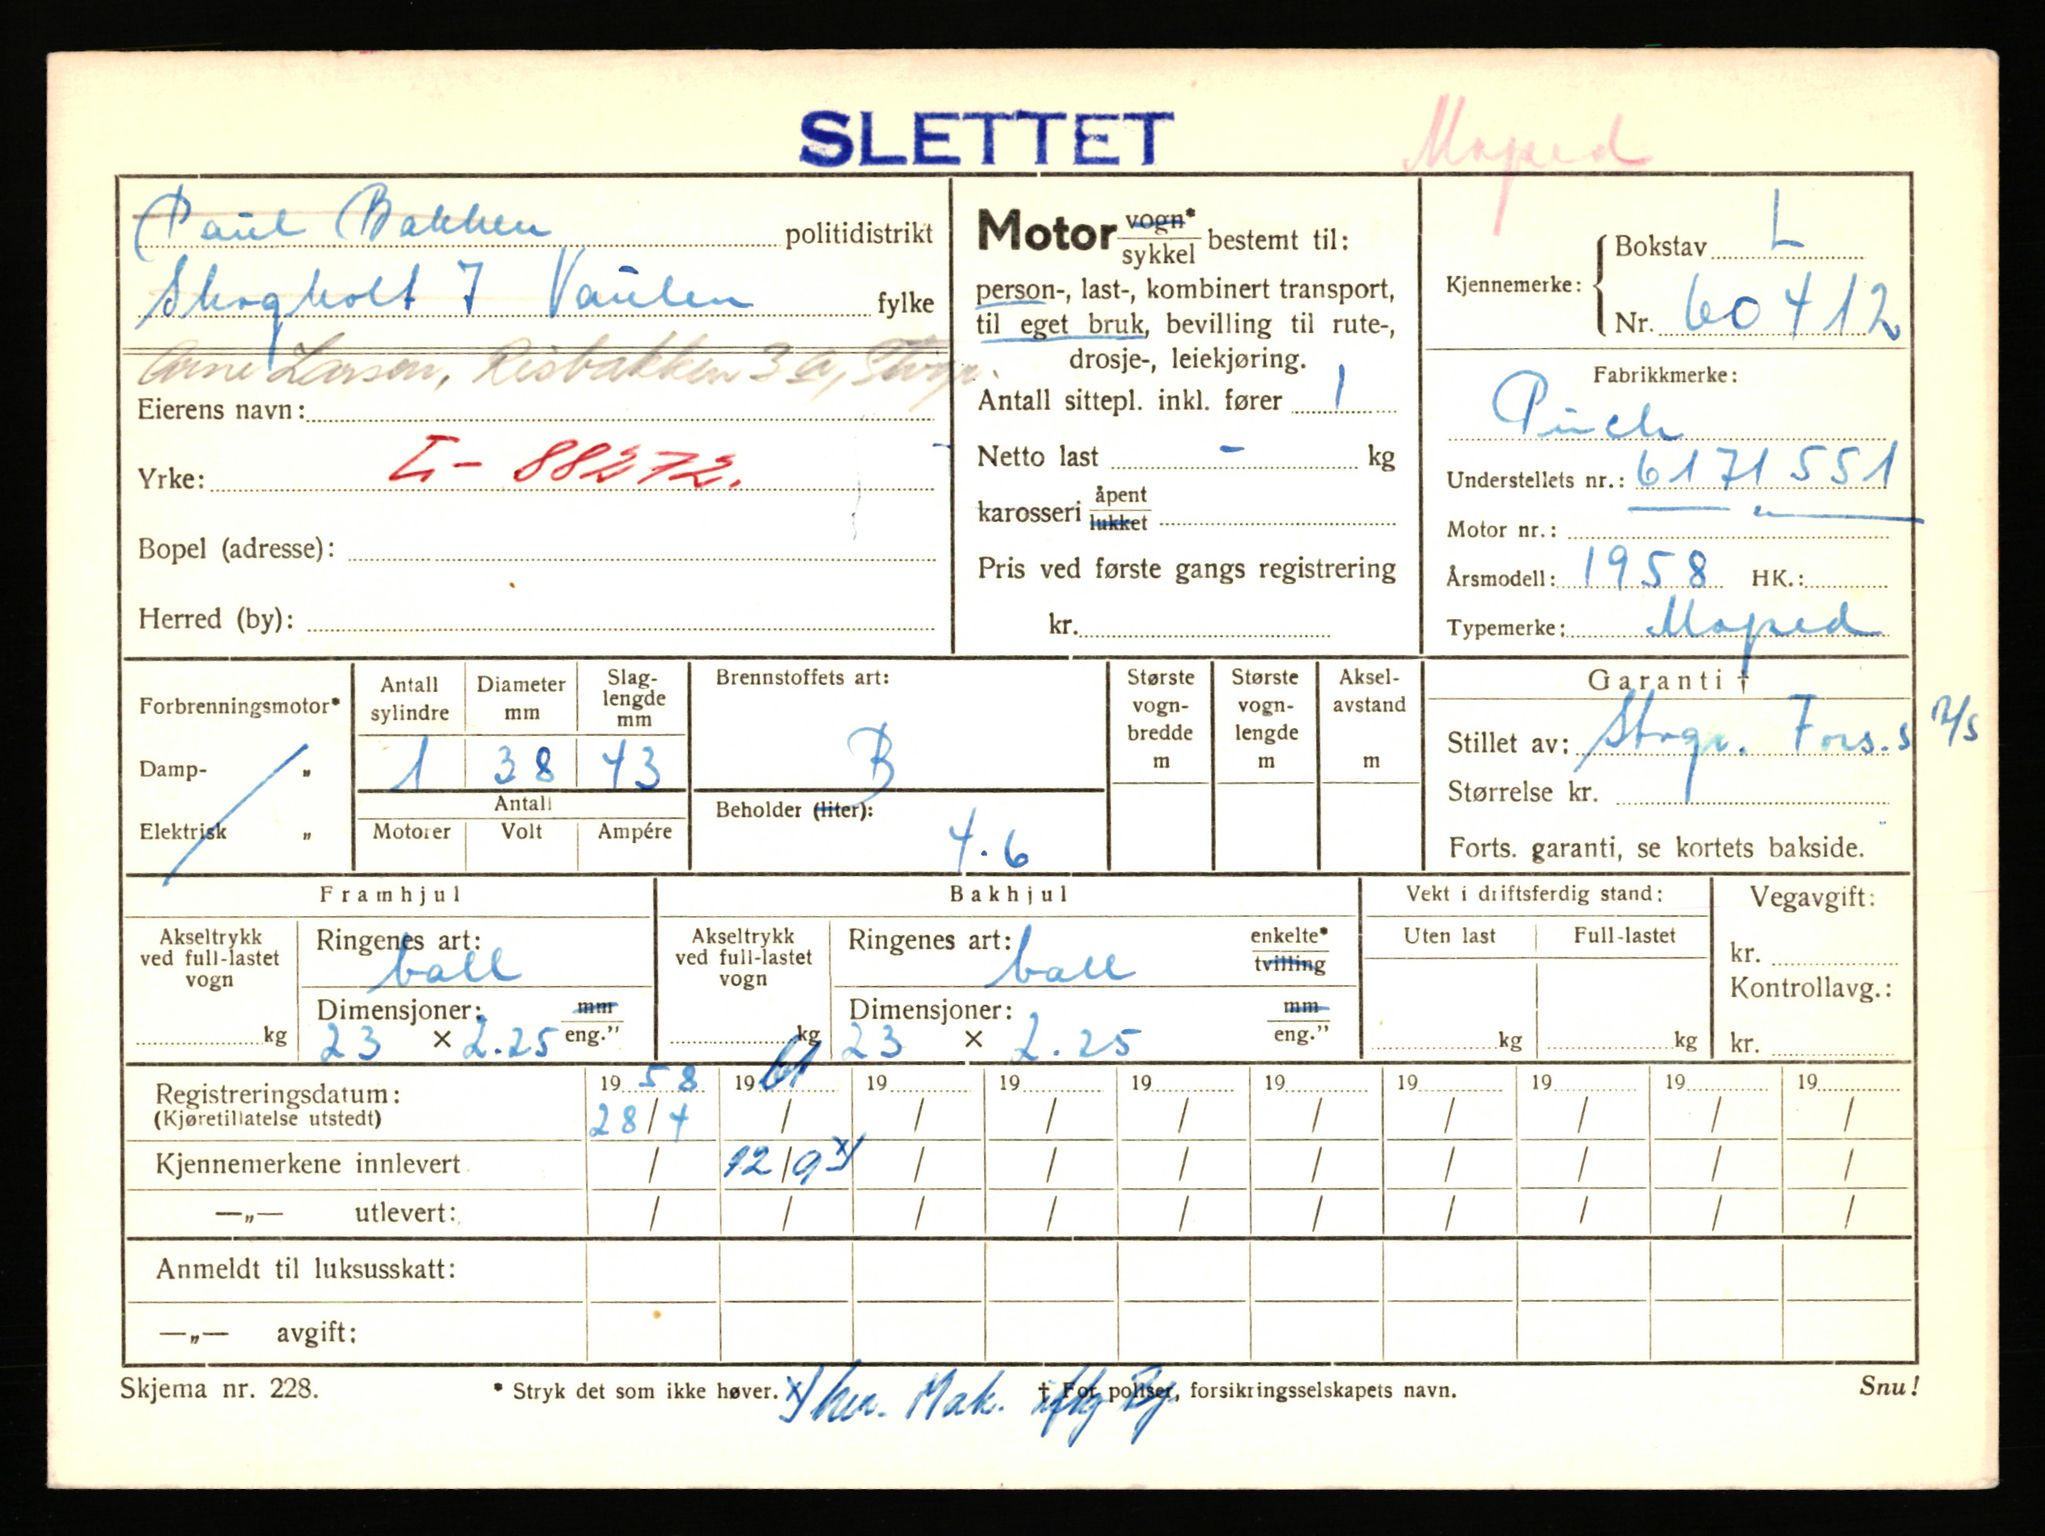 SLETTET
Moped
Paul Bakken politidistrikt
Skogholt 7 Vaulen fylke
Arne Larsen, Risbakken 3a, Stvgr.
Eierens navn:
Yrke: L- 88272.
Bopel (adresse):
Herred (by):
Motor vogn* sykkel bestemt til:
person-, last-, kombinert transport,
til eget bruk, bevilling til rute-,
drosje-, leiekjøring.
Antall sittepl. inkl. fører 1
Netto last - kg
karosseri åpent lukket
Pris ved første gangs registrering
kr.
Kjennemerke: Bokstav L
Nr. 60412
Fabrikkmerke:
Puch
Understellets nr.: 6171551
Motor nr.:
Årsmodell: 1958 HK.:
Typemerke: Moped
Forbrenningsmotor*
Damp- „
Elektrisk „
Antall sylindre Diameter mm Slag-lengde mm
1 38 43
Antall
Motorer Volt Ampére
Brennstoffets art:
B
Beholder (liter):
4.6
Største vogn-bredde m
Største vogn-lengde m
Aksel-avstand m
Garanti †
Stillet av: Stvgr. Fors.s
Størrelse kr.
Forts. garanti, se kortets bakside.
Framhjul
Akseltrykk ved full-lastet vogn
kg
Ringenes art:
ball
Dimensjoner: mm
23 × 2.25 eng.”
Bakhjul
Akseltrykk ved full-lastet vogn
kg
Ringenes art: enkelte*
ball tvilling
Dimensjoner: mm
23 × 2.25 eng.”
Vekt i driftsferdig stand:
Uten last Full-lastet
kg kg
Vegavgift:
kr.
Kontrollavg.:
kr.
Registreringsdatum: 1958 1961 19 19 19 19 19 19 19 19
(Kjøretillatelse utstedt) 28/4 / / / / / / / / /
Kjennemerkene innlevert / 12/9 x) / / / / / / / /
—„— utlevert: / / / / / / / / / /
Anmeldt til luksusskatt:
—„— avgift:
Skjema nr. 228. * Stryk det som ikke høver. † For poliser, forsikringsselskapets navn. Snu!